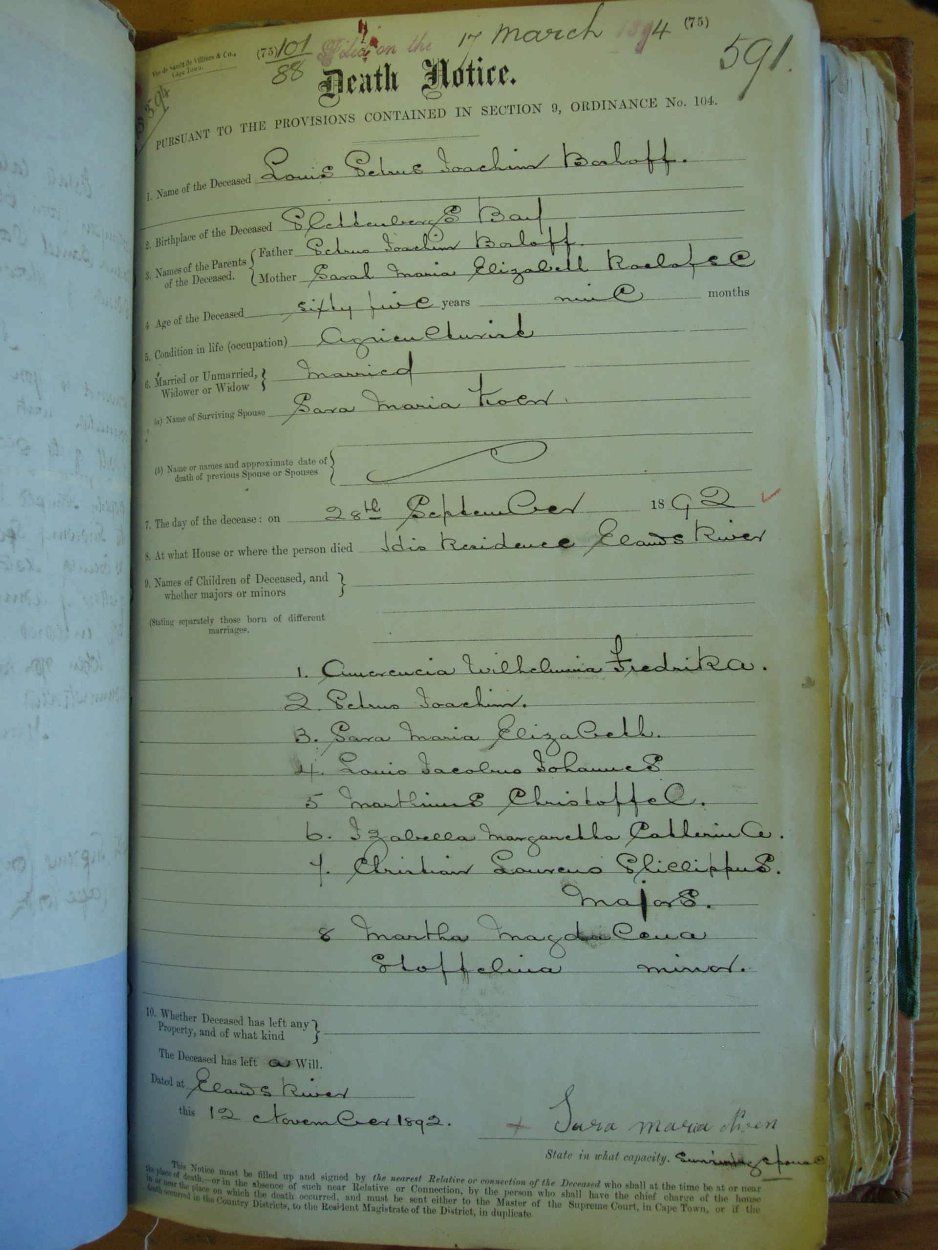 Van de Sandt de Villiers & Co., Cape Town.
(75) 101 Filed on the 17 March 1894 (75)
88
591.
Death Notice.
PURSUANT TO THE PROVISIONS CONTAINED IN SECTION 9, ORDINANCE No. 104.
1. Name of the Deceased Louis Petrus Joachim Barloff.
2. Birthplace of the Deceased Plettenbergs Bay
3. Names of the Parents of the Deceased. Father Petrus Joachim Barloff.
Mother Sarah Maria Elizabeth Roelofse
4. Age of the Deceased sixty five years nine months
5. Condition in life (occupation) Agriculturist
6. Married or Unmarried, Widower or Widow Married
(a) Name of Surviving Spouse Sara Maria Koen.
(b) Name or names and approximate date of death of previous Spouse or Spouses
7. The day of the decease: on 28th September 1892
8. At what House or where the person died His Residence Elands River
9. Names of Children of Deceased, and whether majors or minors
(Stating separately those born of different marriages.
1. Amerencia Wilhelmina Fredrika.
2. Petrus Joachim.
3. Sara Maria Elizabeth.
4. Louis Jacobus Johannes
5 Marthinus Christoffel.
6. Izabella Margaretha Catherina.
7. Christian Lourens Phillippus.
Majors.
8 Martha Magdalena
Stoffelina minor.
10. Whether Deceased has left any Property, and of what kind
The Deceased has left a Will.
Dated at Elands River
this 12 November 1892.
+ Sara maria Koen
State in what capacity. Surviving spouse
This Notice must be filled up and signed by the nearest Relative or connection of the Deceased who shall at the time be at or near
the place of death,—or in the absence of such near Relative or Connection, by the person who shall have the chief charge of the house
in or near the place on which the death occurred, and must be sent either to the Master of the Supreme Court, in Cape Town, or if the
death occurred in the Country Districts, to the Resident Magistrate of the District, in duplicate.